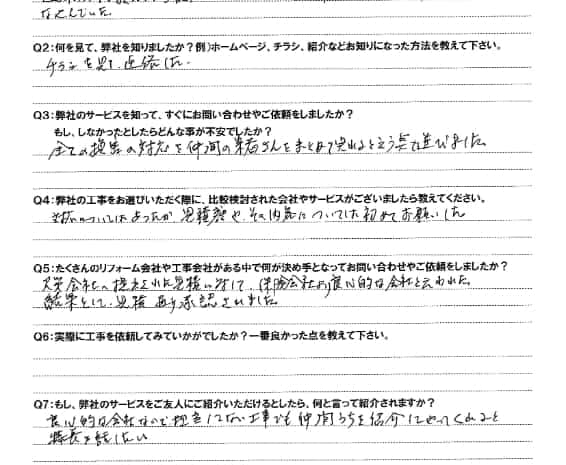 なくていた
Q2:何を見て、弊社を知りましたか?例)ホームページ、チラシ、紹介などお知りになった方法を教えて下さい。
チラシを見て、連絡した。
Q3:弊社のサービスを知って、すぐにお問い合わせやご依頼をしましたか?
もし、しなかったとしたらどんな事が不安でしたか?
全ての損害の対応を仲間の業者さんをまとめて来れると言う点で選びました。
Q4:弊社の工事をお選びいただく際に、比較検討された会社やサービスがございましたら教えてください。
あったが、見積書や、その内容については初めてお願いした
Q5:たくさんのリフォーム会社や工事会社がある中で何が決め手となってお問い合わせやご依頼をしましたか?
会社へ提出された見積に対して、保険会社より良心的な会社と云われた
結果として、見積通り承認されました。
Q6:実際に工事を依頼してみていかがでしたか?一番良かった点を教えて下さい。
Q7:もし、弊社のサービスをご友人にご紹介いただけるとしたら、何と言って紹介されますか?
良心的な会社なので担当してない工事でも仲間うちを紹介してやってくれると
特長を話したい